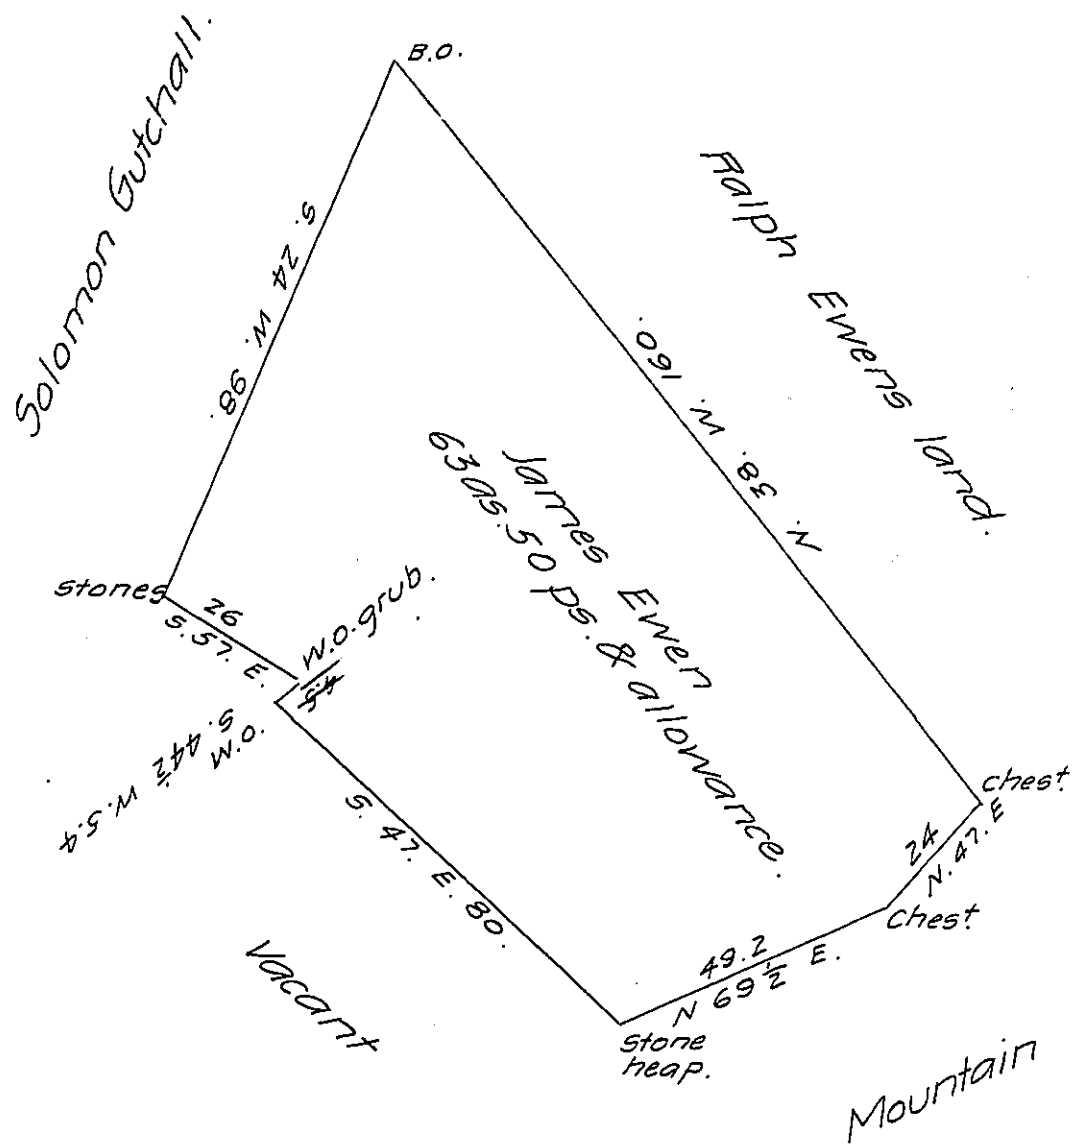 Solomon Gutchall.
B.O.
Ralph Ewens land.
S. 24 W. 98.
N. 38. W. 160.
James Ewen
63 as. 50 ps. & allowance.
stones
26
S. 57. E.
W.O. grub.
5.4
S. 44½ W. 5.4
W.O.
S. 47. E. 80.
Chest.
24
N. 47. E
Chest.
49.2
N 69½ E.
Stone
heap.
Vacant
Mountain